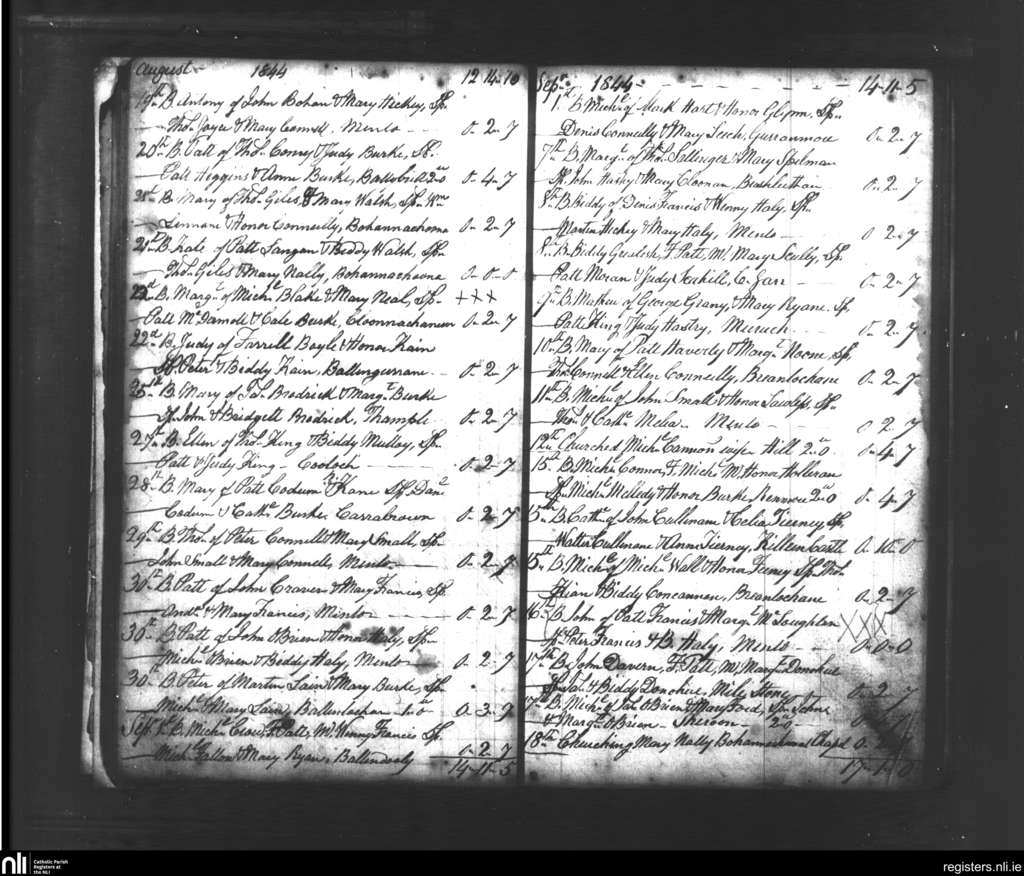 August 1844 12-14-10
19th B. Antony of John Bohan & Mary Hickey, Sp.
Thos. Joyce & Mary Connell, Menlo 0-2-7
20th B. Patt of Thos. Conry & Judy Burke, Sp.
Patt Higgins & Anne Burke, 0-4-7
21st B. Mary of Thos. Giles & Mary Walsh, Sp. Wm
Linnane & Honor Connelly, Bohannachoona 0-2-7
21st B. Kate of Patt Langan & Biddy Walsh, Sp.
Thos. Giles & Mary Nally, Bohannachoona 0-0-0
22nd B. Margt. of Michl. Blake & Mary Neal, Sp. +XX
Patt McDamott & Cate Burke, Cloonnachanun 0-2-7
22nd B. Judy of Farrell Boyle & Honor Kain
Sp. Peter & Biddy Kain, Ballingurrane 0-2-7
25th B. Mary of Jas. Brodrick & Margt. Burke
Sp. John & Bridgett Brodrick, 0-2-7
27th B. Ellen of Thos. King & Biddy Mulloy, Sp.
Patt & Judy King - Cooloch 0-2-7
28th B. Mary of Patt Codum & Kane Sp. Danl
Codum & Cathe. Burke Carrabrown 0-2-7
29th B. Thos. of Peter Connell & Mary Small, Sp.
John Small & Mary Connell, Menlo 0-2-7
30th B. Patt of John Craven & Mary Francis, Sp.
Andw. & Mary Francis, Menlo 0-2-7
30th B. Patt of John OBrien & Honor Haly, Sp.
Michl. OBrien & Biddy Haly, Menlo 0-2-7
30th B. Peter of Martin Lain & Mary Burke, Sp.
Michl. & Mary Lain, 0-3-9
Sept. 1st B. Michl. Crow, F. Patt, W. Winny Francis Sp.
Michl. Fallon & Mary Ryan, Ballindooly 0-2-7
14-11-5
Sepr. 1844 14-11-5
1st B. Michl. of Mark Hart & Honor Glynn, Sp.
Denis Connelly & Mary Leech, Gurrannou 0-2-7
7th B. Margt. of Thos. Sallinger & Mary Spelman
Sp. John Hasky & Mary Cloonan, 0-2-7
8th B. Biddy of Denis Francis & Winny Haly, Sp.
Martin Hickey & Mary Haly, Menlo 0-2-7
8th B. Biddy Grealish, F. Patt, W. Mary Scully, Sp.
Patt Moran & Judy C. Garr 0-2-7
9th B. Mathew of George Grany & Mary Ryane, Sp.
Patt King & Judy Hastry, Muruch 0-2-7
10th B. Mary of Patt Haverty & Margt. Noone, Sp.
Connell & Ellen Connelly, Breanlochane 0-2-7
11th B. Michl. of John Small & Honor Lawless, Sp.
Thos. & Cathe. Melia Menlo 0-2-7
12th Churched Michl. Cannon wife Hill 2-0 0-4-7
15th B. Michl. Connor, F. Michl. W. Honor Holleran
Sp. Michl. Melledy & Honor Burke 0-4-7
15th B. Cathe. of John Cullinane & Celia Tierney, Sp.
Walter Cullinane & Anne Tierney, Killeen Castle 0-10-0
15th B. Michl. of Michl. Wall & Honor Feeney Sp. Thos.
& Biddy Concannon, Breanlochane 0-2-7
16th B. John of Patt Francis & Margt. McLoughlen XXX
Sp. Peter Francis & B. Haly, Menlo 0-0-0
17th B. John Davern, F. Patt, W. Margt. Donohue
Sp. Jas. & Biddy Donohue, Mile Stone 0-2-7
17th B. Michl. of Jas. OBrien & Mary Ford, Sp. John
& Margt. OBrien
18th Churching Mary Nally Chapl
17-1-0
nli
Catholic Parish
Registers at
the NLI
registers.nli.ie